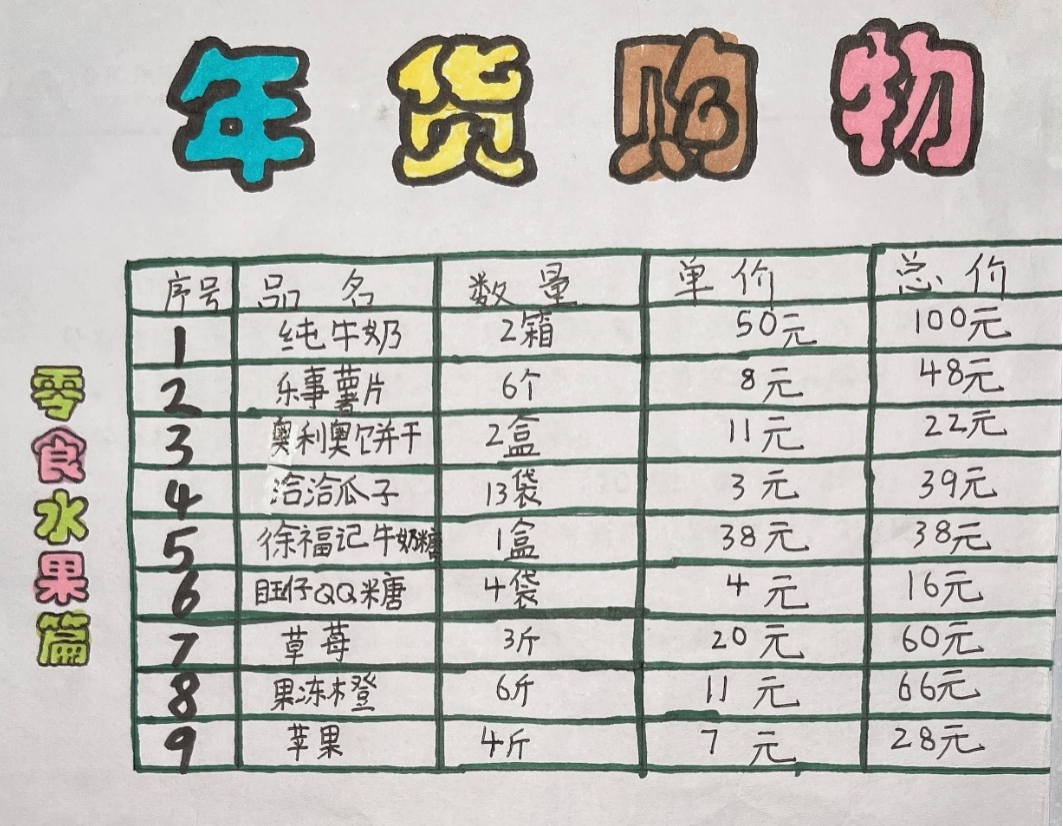 年货购物
零食水果篇
序号 品名 数量 单价 总价
1 纯牛奶 2箱 50元 100元
2 乐事薯片 6个 8元 48元
3 奥利奥饼干 2盒 11元 22元
4 洽洽瓜子 13袋 3元 39元
5 徐福记牛奶糖 1盒 38元 38元
6 旺仔QQ糖 4袋 4元 16元
7 草莓 3斤 20元 60元
8 果冻橙 6斤 11元 66元
9 苹果 4斤 7元 28元